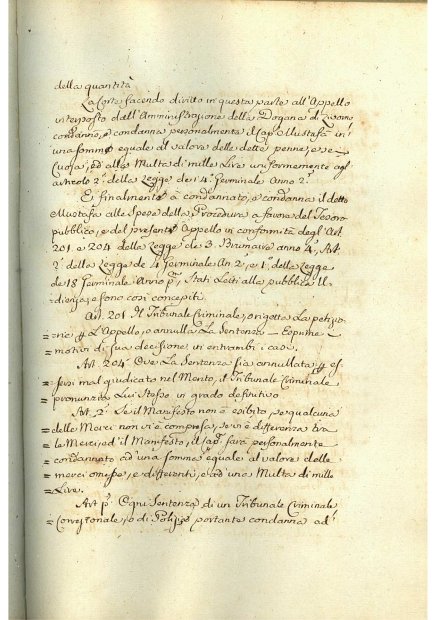 della quantità
La Corte facendo diritto in questa parte all'Appello
interposto dall'Amministrazione della Dogana di Livorno
condannò, e condanna personalmente il Cap. Mustafà in
una somma eguale al valore delle dette penne, e se
Cuoja, ed alla Multa di mille Lire uniformemente agl
articolo 2° della Legge de i 4. Germinale Anno 2°.
E finalmente à condannato, e condanna il detto
Mustafà alle Spese della Procedura a favore del Tesoro
pubblico, e del presente Appello in conformità degl'Art.
201. e 204 della Legge de 3. Brumaire anno 4°, Art.
2° della Legge de 4 Germinale An. 2°, e 1° della Legge
de 18 Germinale Anno p°, Stati Letti alla pubblica U=
dienza, e sono così concepiti.
Art. 201. Il Tribunale Criminale, o rigetta La petizio
= nie, p L'Appello, o annulla La Sentenza – Esprime
= motivi di sua decisione in entrambi i casi.
Art. 204. Ove La Sentenza sia annullata p es
= sersi mal giudicato nel Merito, il Tribunale Criminale
= pronunzia Lui stesso in grado definitivo
Art. 2. Se il Manifesto non è esibito, se qualcuna
= delle Merci non vi è compresa, se vi è differenza tra
= le Merci, ed il Manifesto, il Cap. sarà personalmente
= condannato ad una somma eguale al valore delle
= merci omesse, e differenti, e ad una Multa di mille
= Lire.
Art. p° Ogni Sentenza di un Tribunale Criminale
= Correzionale, o di Polizia portante condanna ad